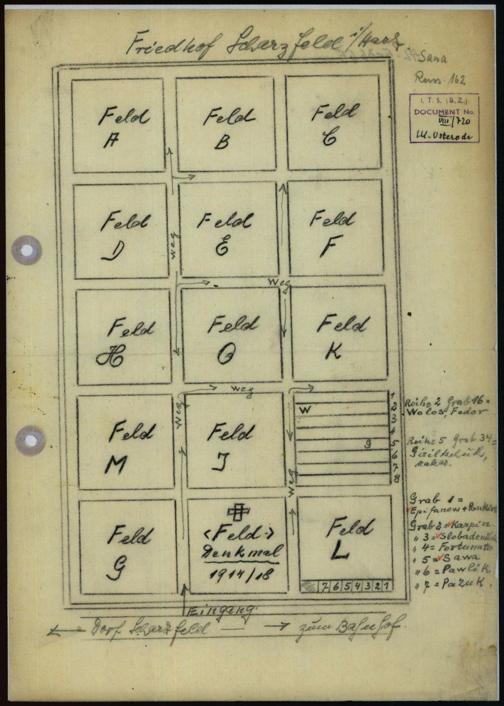 Friedhof Scharzfeld i/Harz
Sana
Russ. 162
I.T.S. (B.Z.)
DOCUMENT No.
VIII/720
LK. Osterode
Feld A
Feld B
Feld C
Feld D
Feld E
Feld F
Weg
Weg
Feld H
Feld O
Feld K
Weg
Weg
Feld M
Feld J
W
9
1
2
3
4
5
6
7
8
Weg
Reihe 2 Grab 16 =
Wolos, Fedor
Reihe 5 Grab
Feld G
<Feld>
Denkmal
1914/18
Feld L
7 6 5 4 3 2 1
Grab 1 =
Epifanow +
Grab 2 = Karpin
" 3 =
" 4 = Fortunato
" 5 = Sawa
" 6 = Pawlik
" 7 = Pazuk.
Eingang
Dorf Scharzfeld
zum Bahnhof.